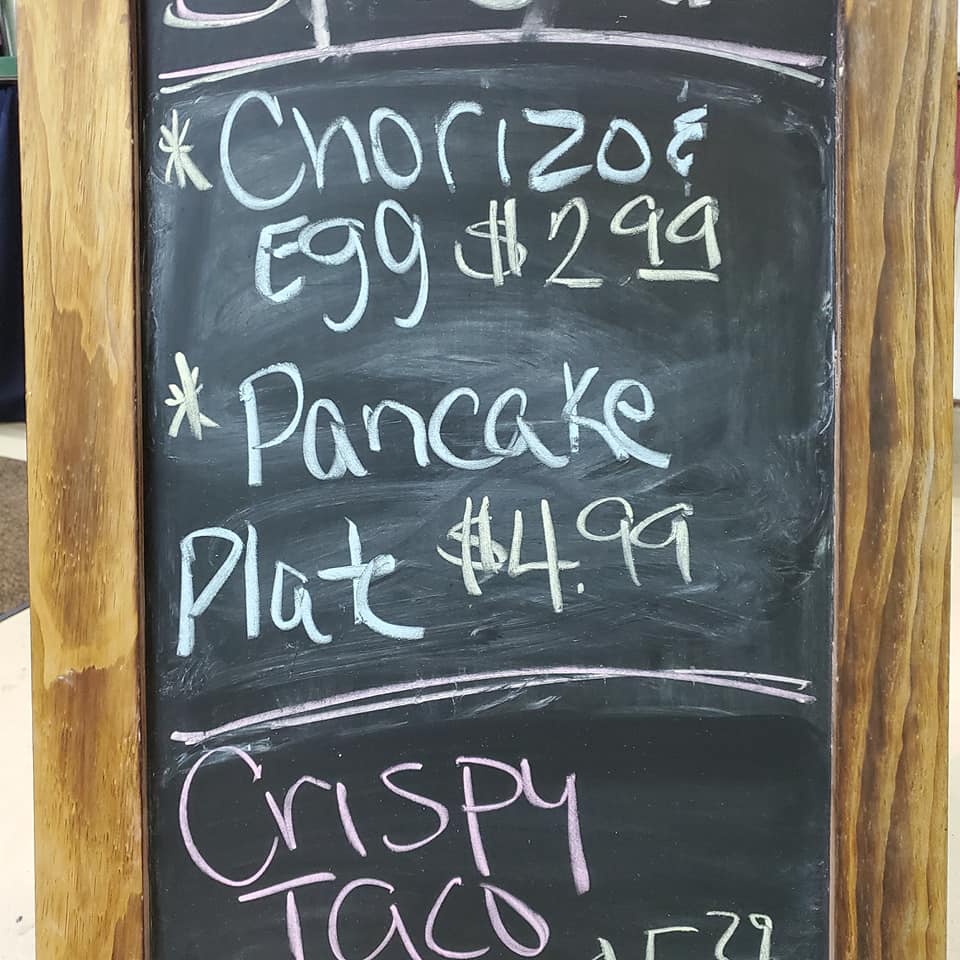 * Chorizo &
Egg $2 99
* Pancake
Plate $4.99
Crispy
Taco